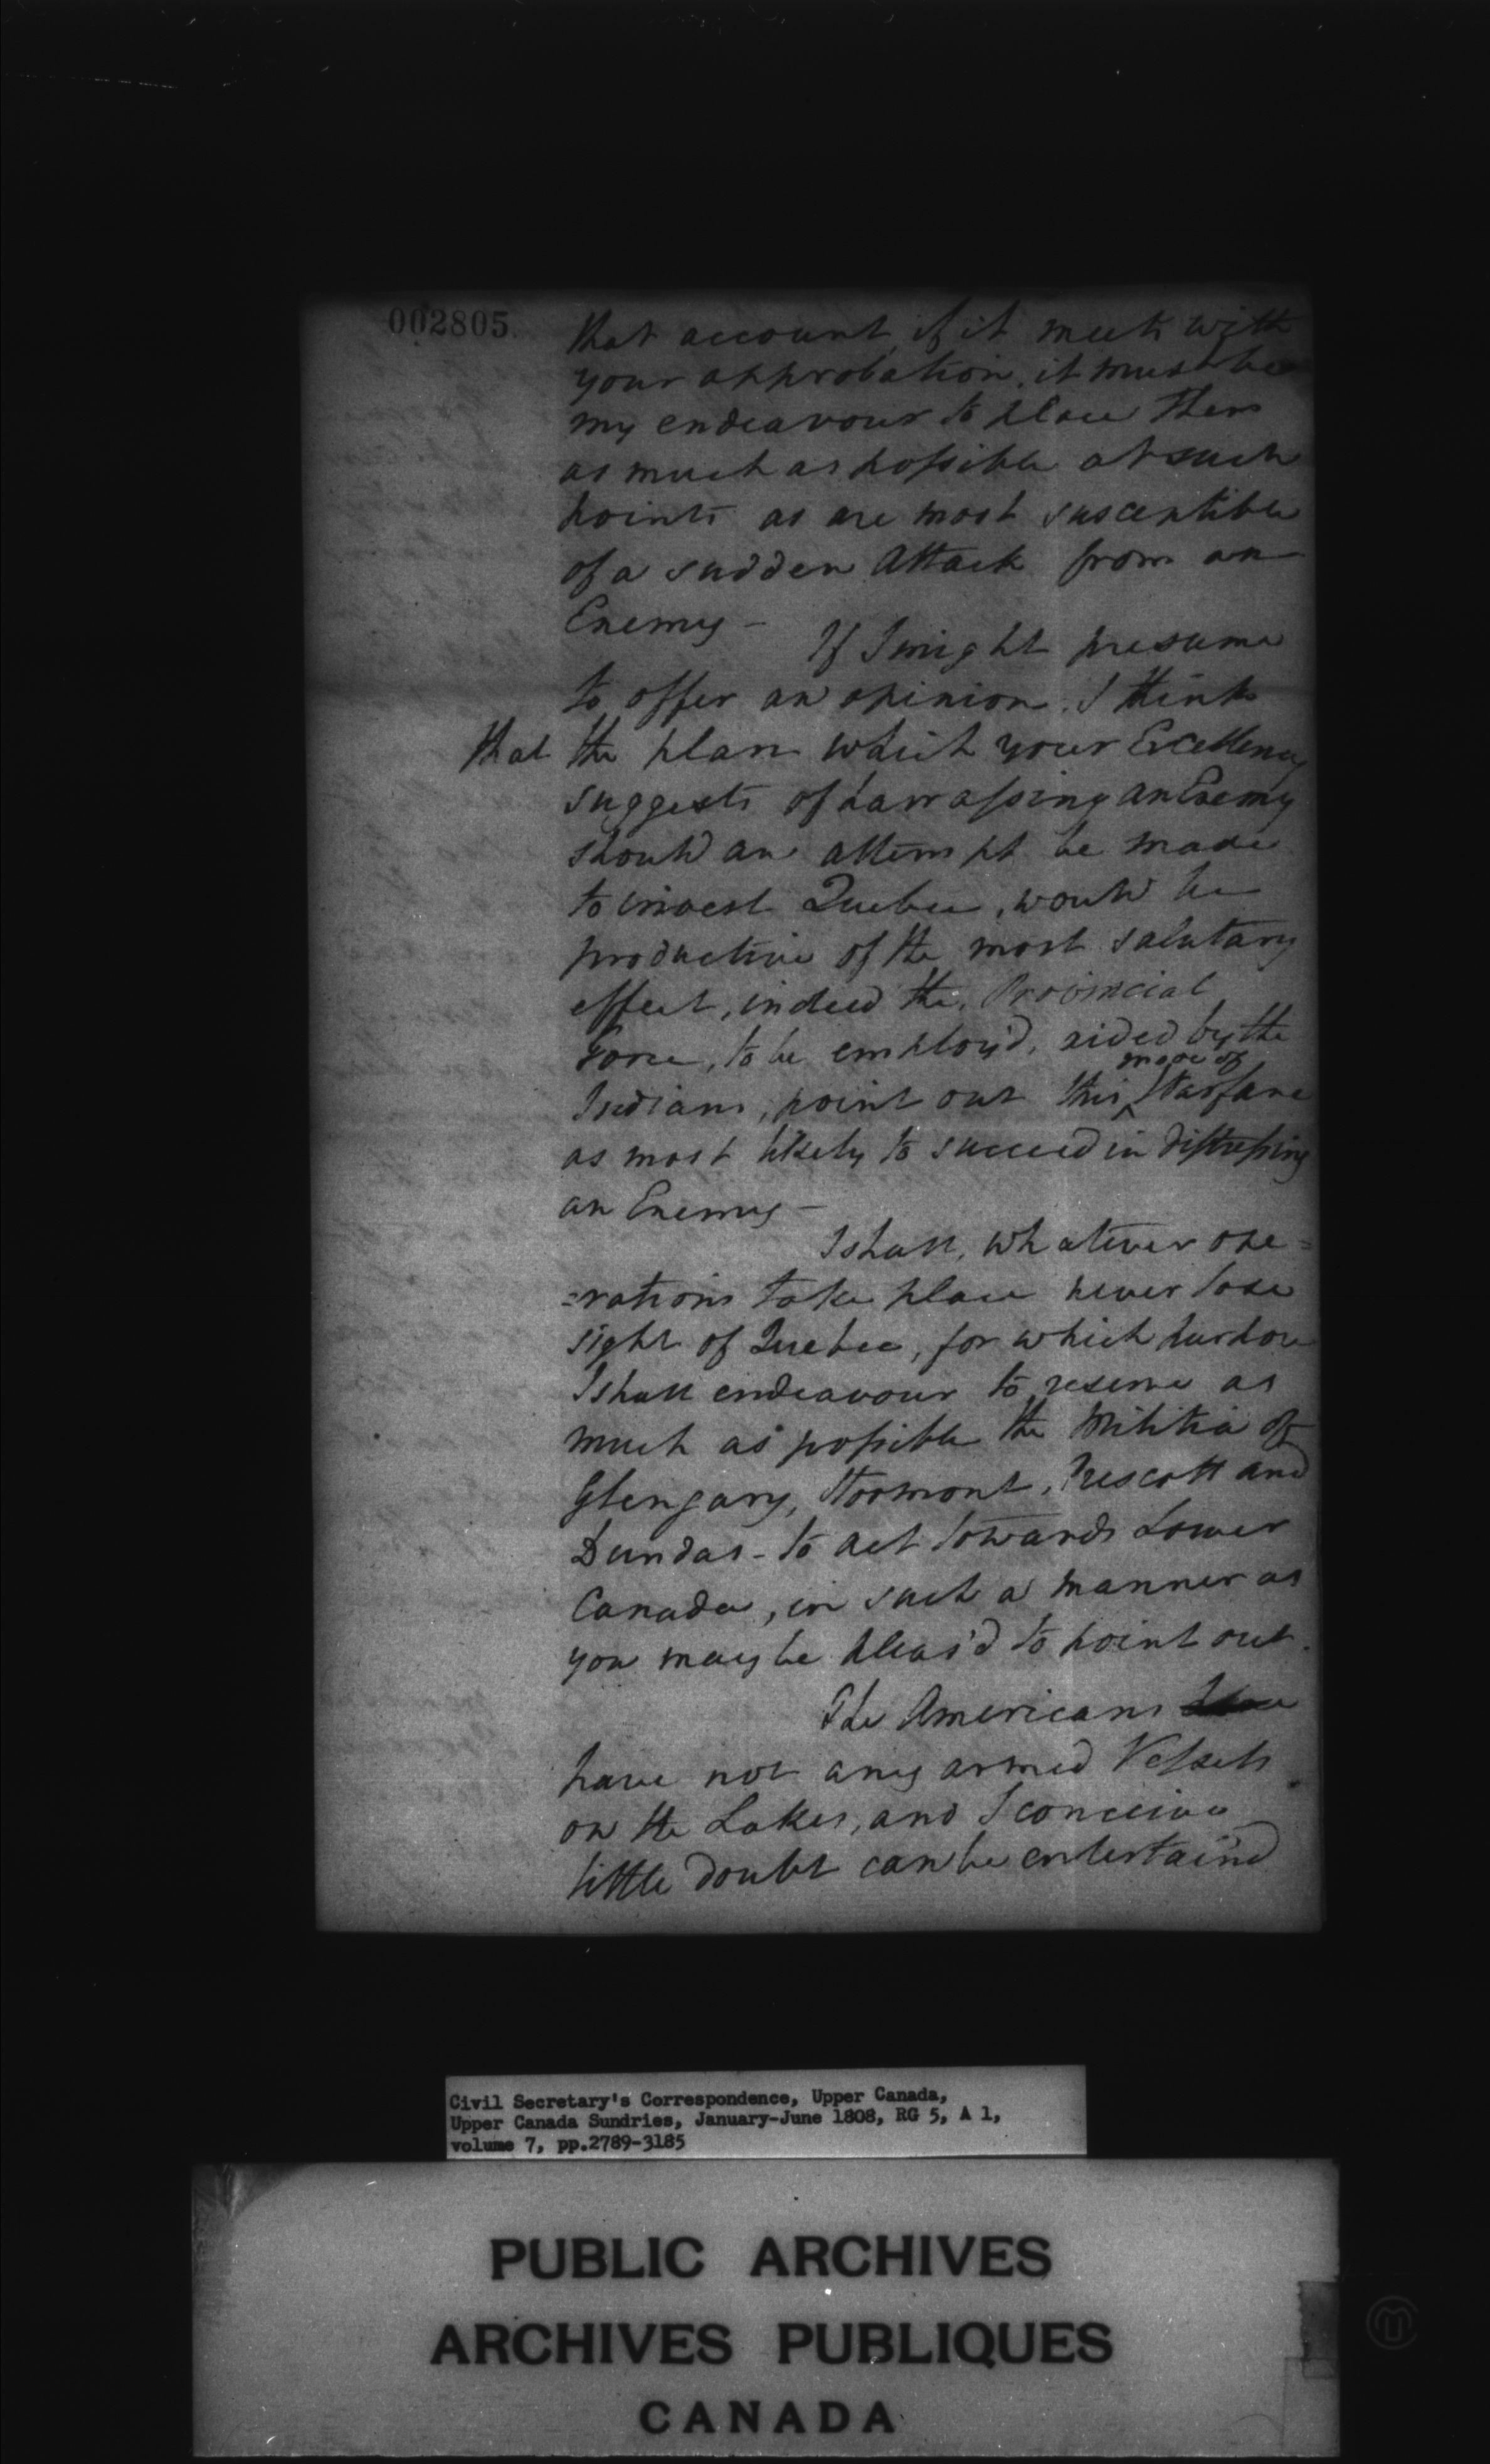 002805
that account, if it meets with
your approbation, it must be
my endeavour to place them
as much as possible at such
points as are most susceptible
of a sudden Attack from an
Enemy –
If I might presume
to offer an opinion, I think
that the plan which your Excellency
suggests of harrassing an Enemy
should an attempt be made
to invest Quebec, would be
productive of the most salutary
effect, indeed the Provincial
Force, to be employ'd, aided by the
mode of
Indians, point out this ^ Warfare
as most likely to succeed in distressing
an Enemy –
I shall, whatever ope=
=rations take place never lose
sight of Quebec, for which purpose
I shall endeavour to reserve as
much as possible the Militia of
Glengary, Stormont, Prescott and
Dundas – to act towards Lower
Canada, in such a manner as
you may be pleas'd to point out.
The Americans
have not any armed Vessels
on the Lakes, and I conceive
little doubt can be entertain'd
Civil Secretary's Correspondence, Upper Canada,
Upper Canada Sundries, January-June 1808, RG 5, A 1,
volume 7, pp.2789-3185
PUBLIC ARCHIVES
ARCHIVES PUBLIQUES
CANADA